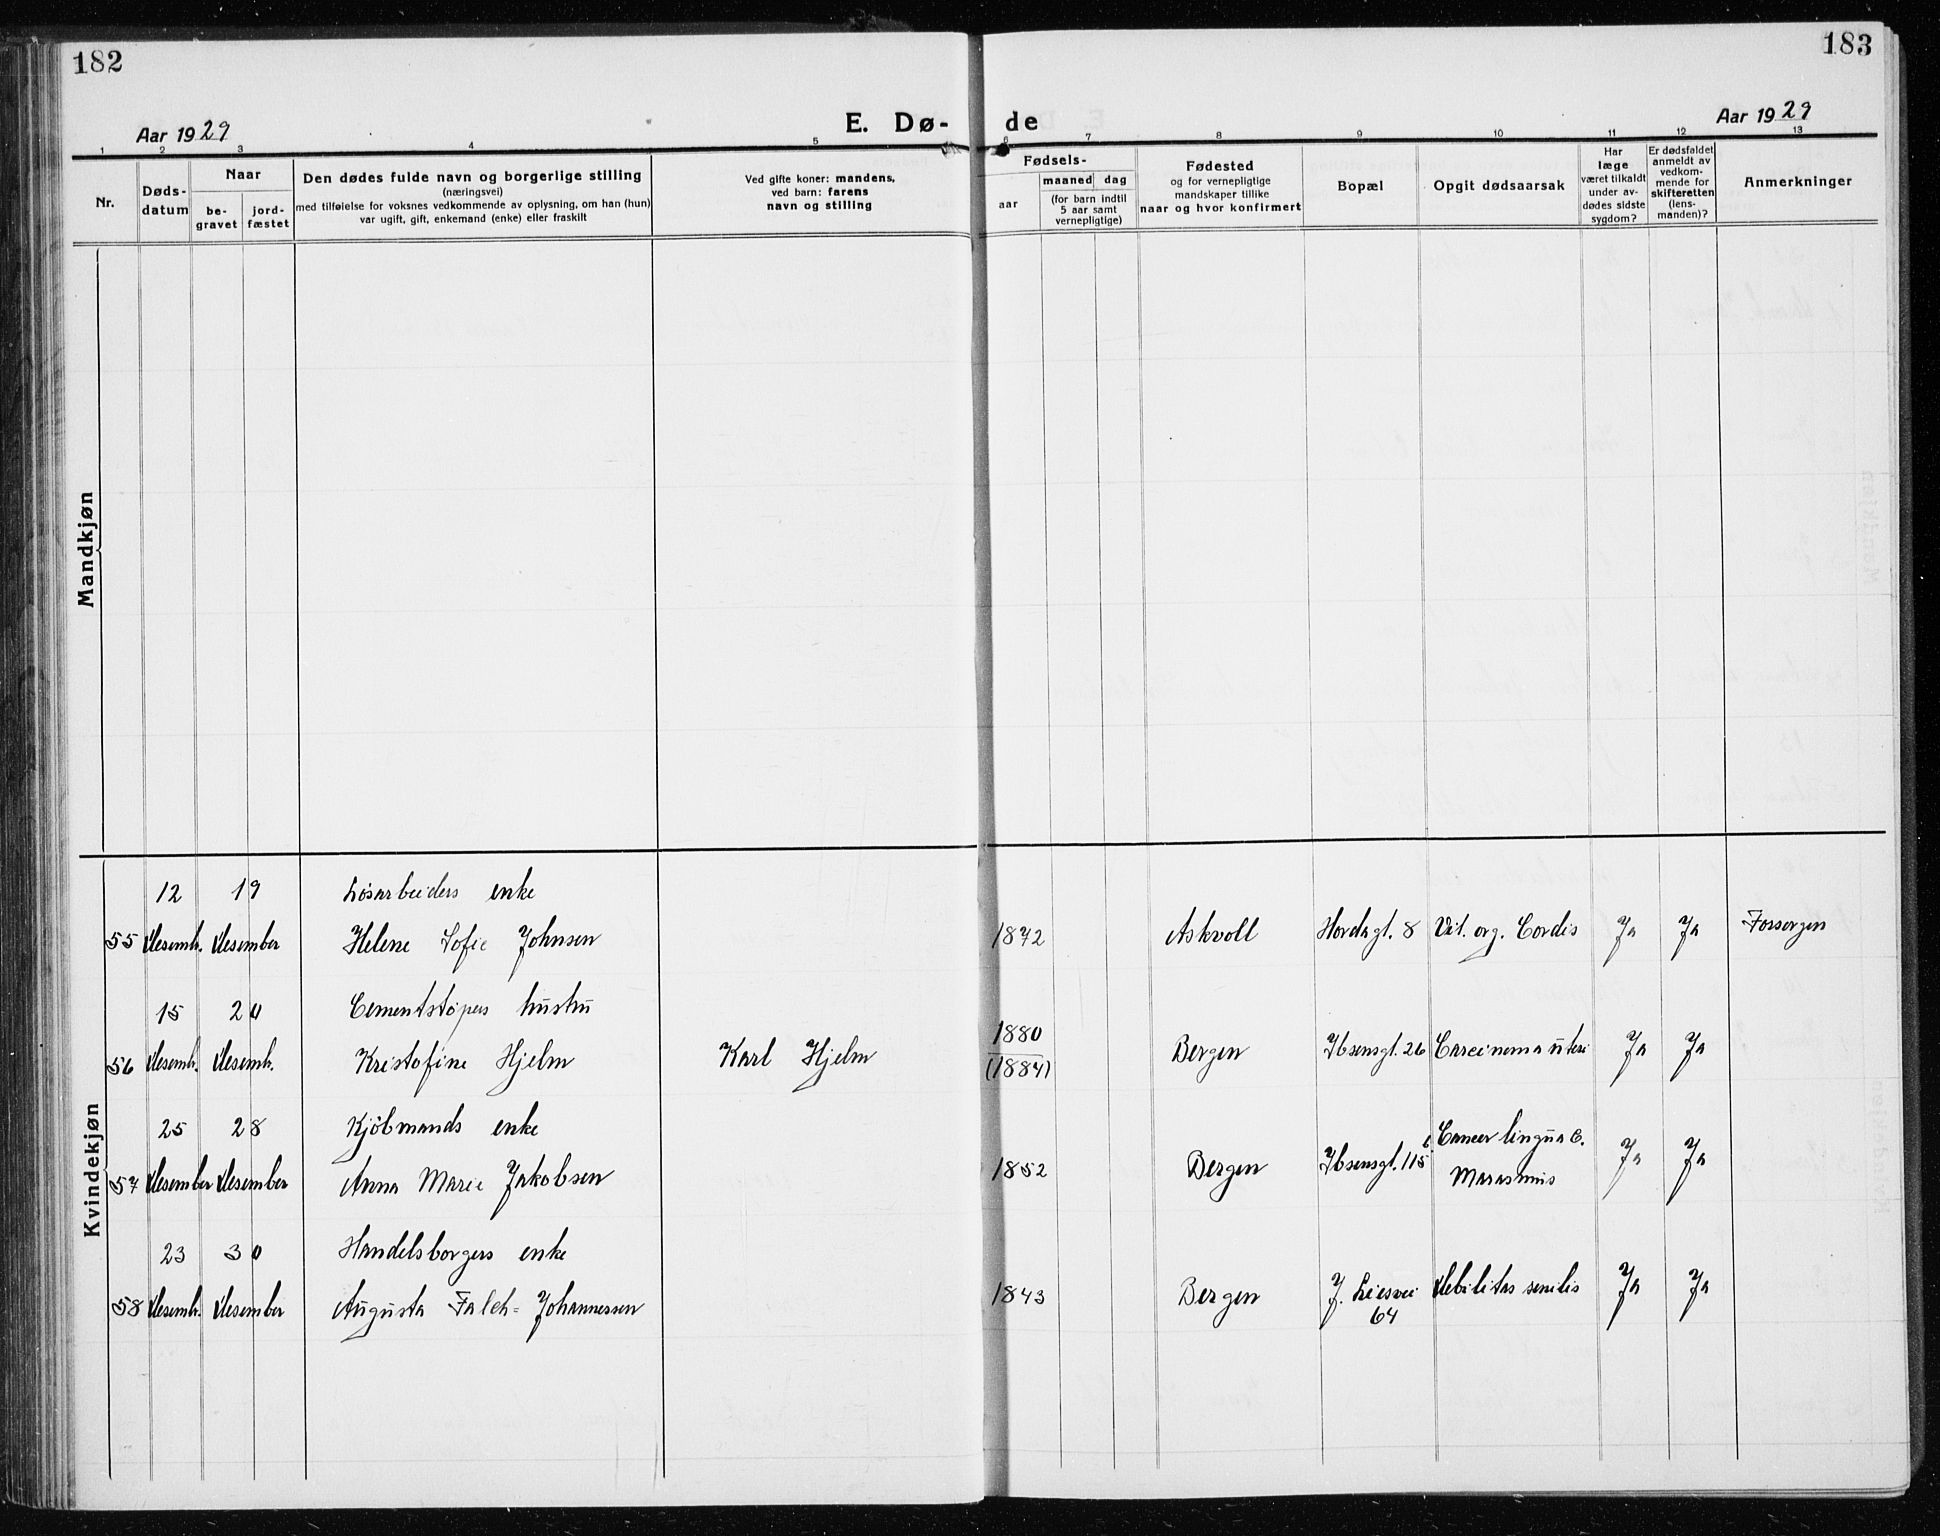 182
183
Aar 1929
E. Dø-
de
Aar 1929
1 2 3 4 5 6 7 8 9 10 11 12 13
Nr.
Døds-
datum
Naar
be-
gravet
jord-
fæstet
Den dødes fulde navn og borgerlige stilling
(næringsvei)
med tilføielse for voksnes vedkommende av oplysning, om han (hun)
var ugift, gift, enkemand (enke) eller fraskilt
Ved gifte koner: mandens,
ved barn: farens
navn og stilling
Fødsels-
aar
maaned
dag
(for barn indtil
5 aar samt
vernepligtige)
Fødested
og for vernepligtige
mandskaper tillike
naar og hvor konfirmert
Bopæl
Opgit dødsaarsak
Har
læge
været tilkaldt
under av-
dødes sidste
sygdom?
Er dødsfaldet
anmeldt av
vedkom-
mende for
skifteretten
(lens-
manden)?
Anmerkninger
Mandkjøn
Kvindekjøn
12 19 Løsarbeiders enke
55 Desembr. Desember Helene Sofie Johnsen 1872 Askvoll Hordagt. 8 Vit. org. Cordis Ja Ja Forsorgen
15 20 Cementstøpers hustru
56 Desembr. Desembr. Kristofine Hjelm Karl Hjelm 1880 Bergen Ibsensgt. 26 Carcinoma uteri Ja Ja
(1884)
25 28 Kjøbmands enke
57 Desember Desember Anna Marie Jakobsen 1852 Bergen Ibsensgt. 115 Cancer lingua c. Ja Ja
Marasmus
23 30 Handelsborgers enke
58 Desembr. Desember Augusta Falch-Johannessen 1843 Bergen J. Liesvei Debilitas senilis Ja Ja
64